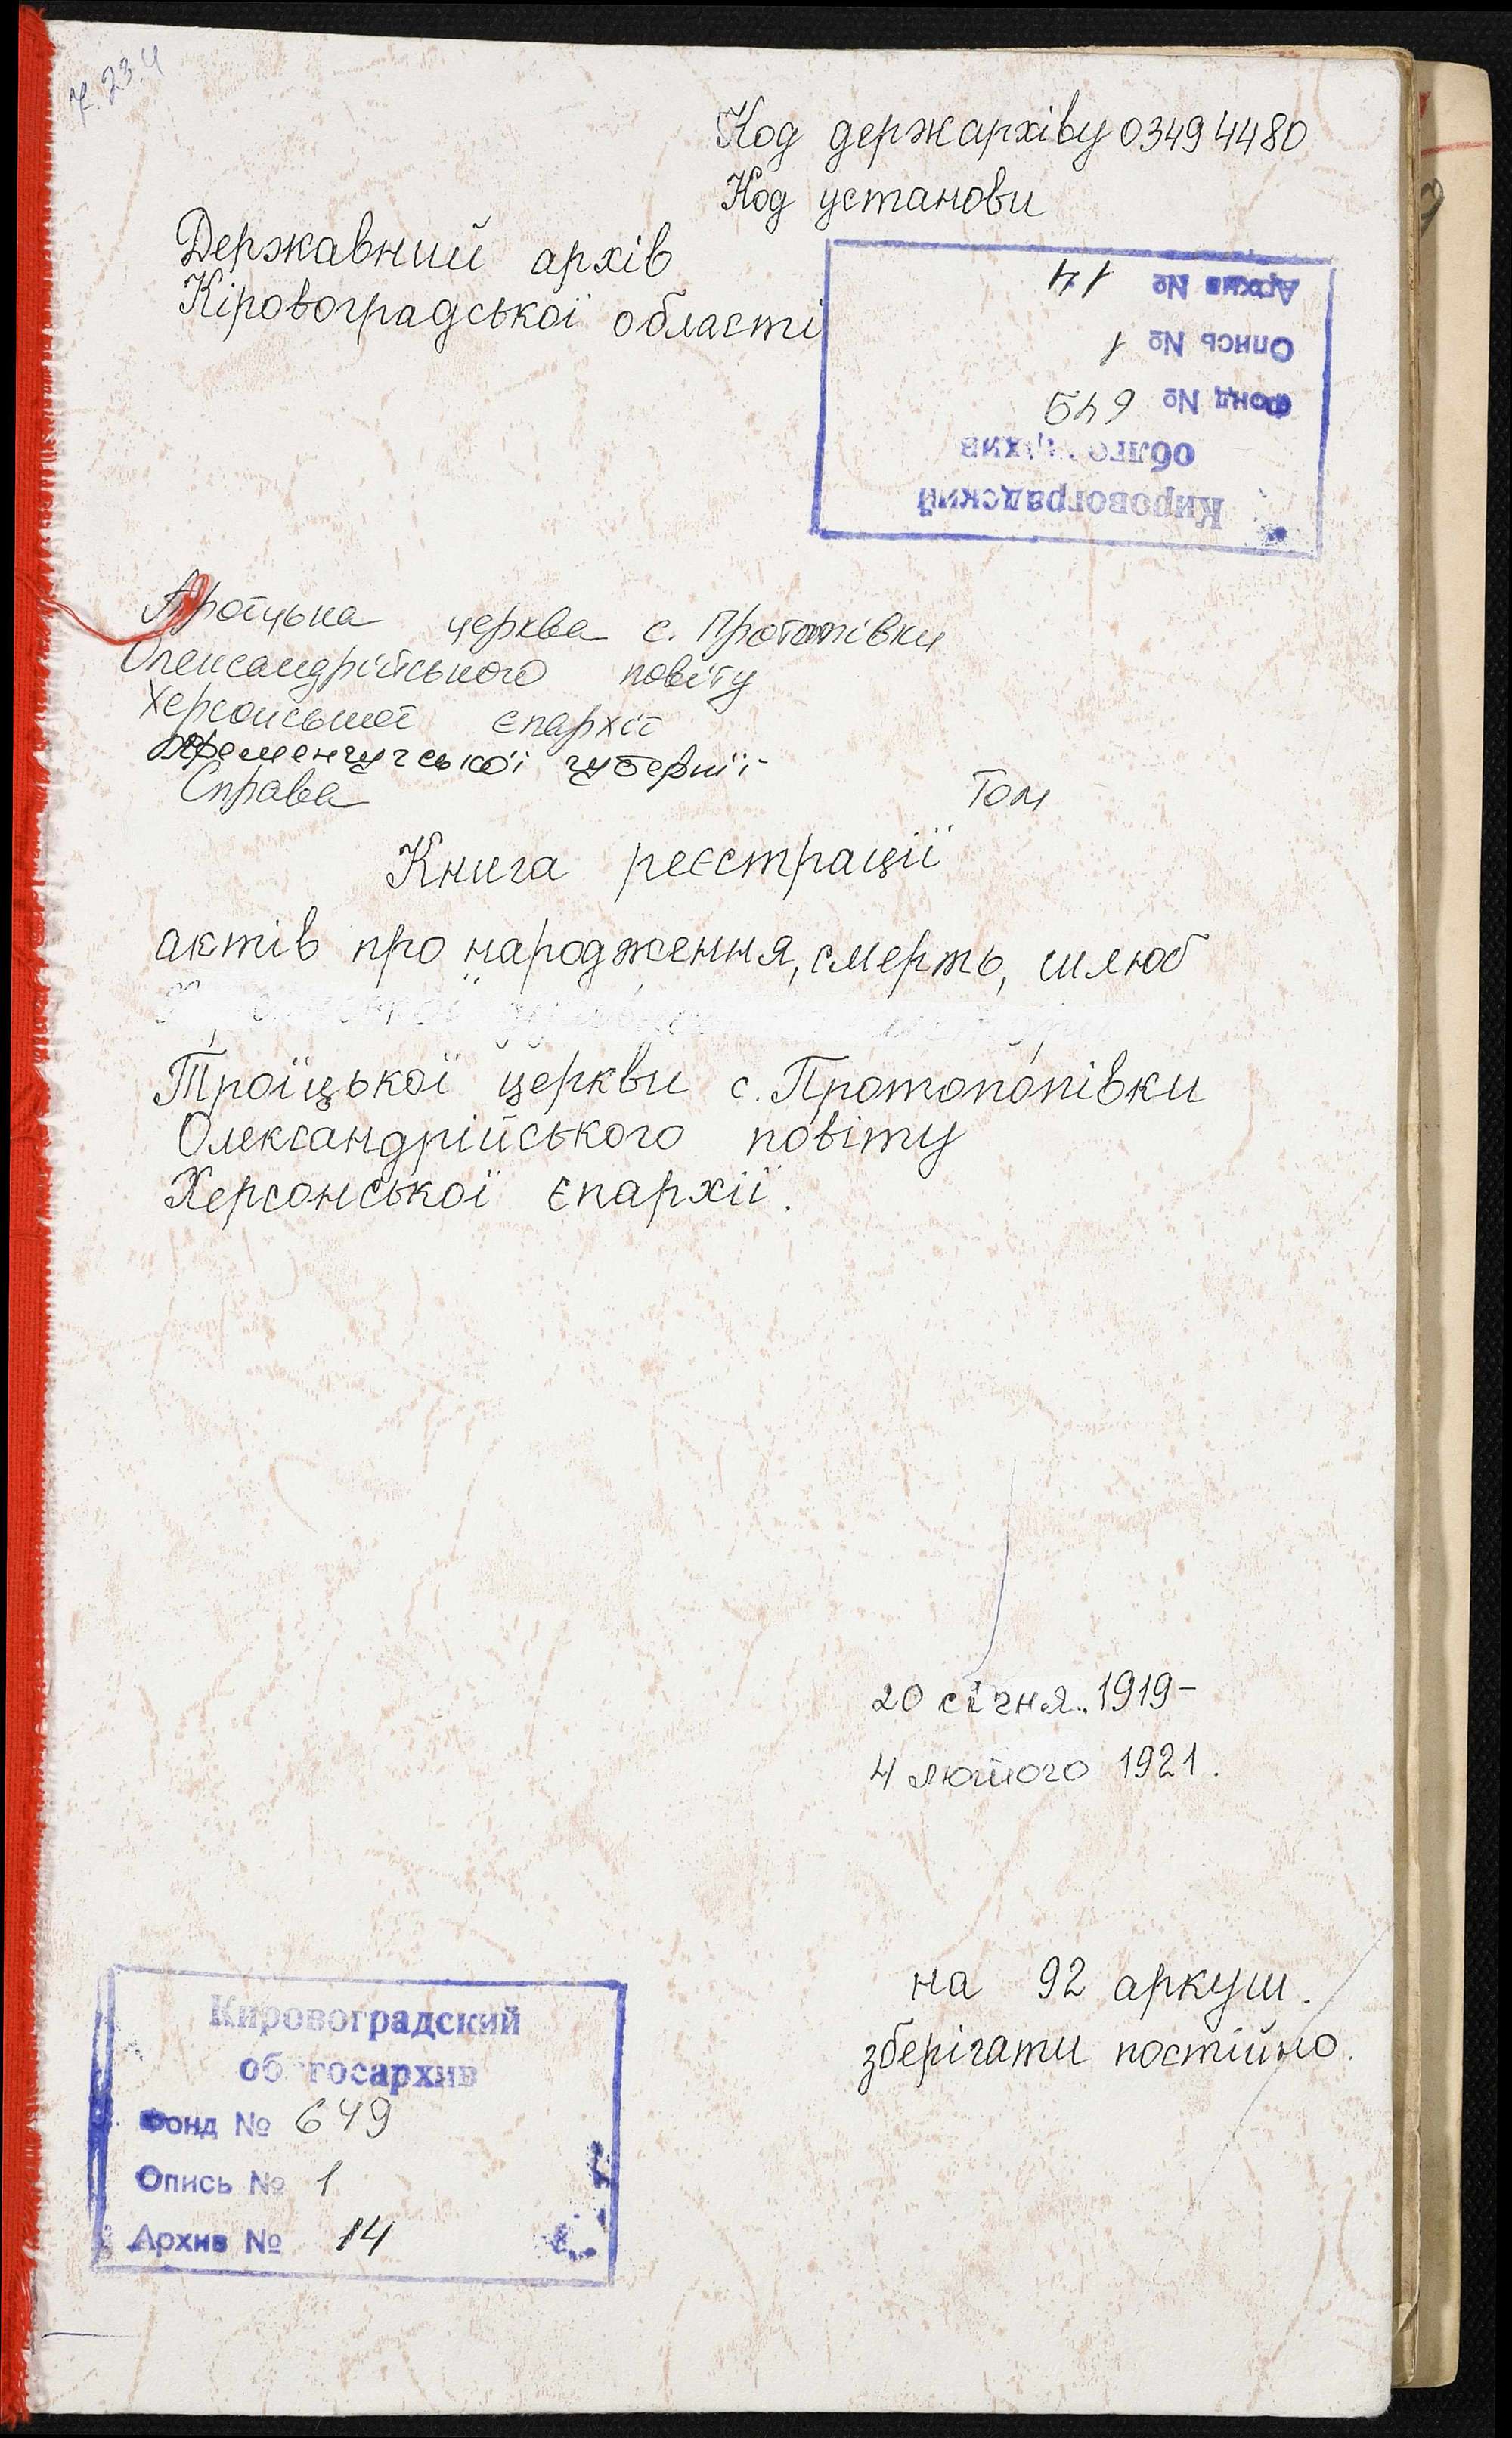 7.23.4
Код держархіву 03494480
Код установи
Державний архів
Кіровоградської області
Кировоградский
облгосархив
Фонд № 649
Опись № 1
Архив № 14
Троїцька церква с. Протопівки
Олександрійського повіту
Херсонської єпархії
Кременчугської губернії
Справа Том
Книга реєстрації
актів про народження, смерть, шлюб
Троїцької церкви с. Протопопівки
Олександрійського повіту
Херсонської єпархії.
20 січня. 1919-
4 лютого 1921.
на 92 аркуш.
зберігати постійно.
Кировоградский
облгосархив
Фонд № 649
Опись № 1
Архив № 14